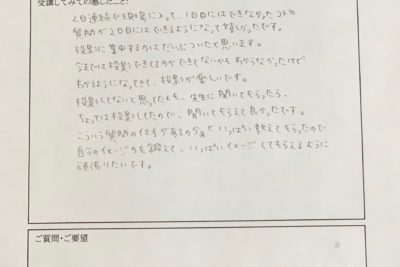 受講してみての感じたこと:
2日連続で駿東に入って、1日目にはできなかったコトや
質問が2日目にはできるようになって嬉しかったです。
投影に集中するのはだいぶついたと思います。
今までは投影できてるのかできてないかもわからなかったけど
わかるようになってきて、投影が楽しいです。
投影してないと思ってたんも、先生に聞いてもらったら、
ちょっとは投影してたので、聞いてもらえて良かったです。
こういう質問の仕方があるのかぁといっぱい教えてもらったので
自分のイメージ力も鍛えて、いっぱいイメージしてもらえるように
頑張りたいです。
ご質問・ご要望